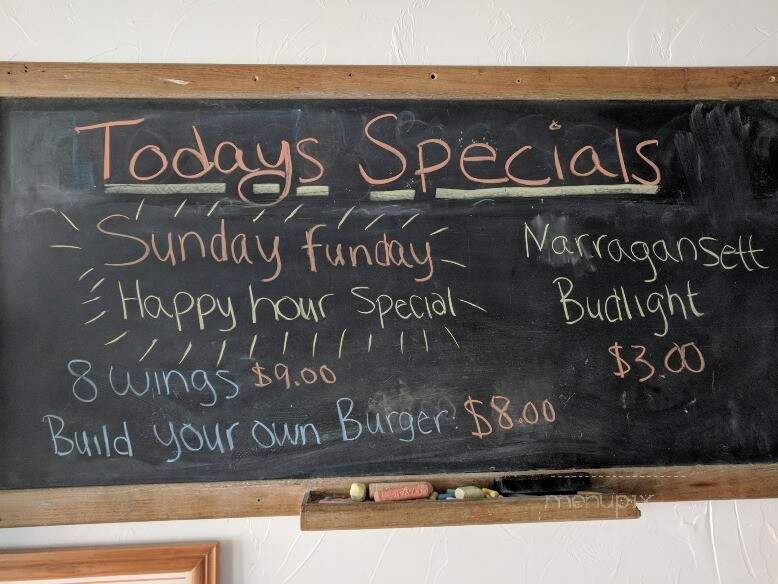 Todays Specials
Sunday funday
Happy hour Special
8 wings $9.00
Build your own Burger $8.00
Narragansett
Budlight
$3.00
menupix